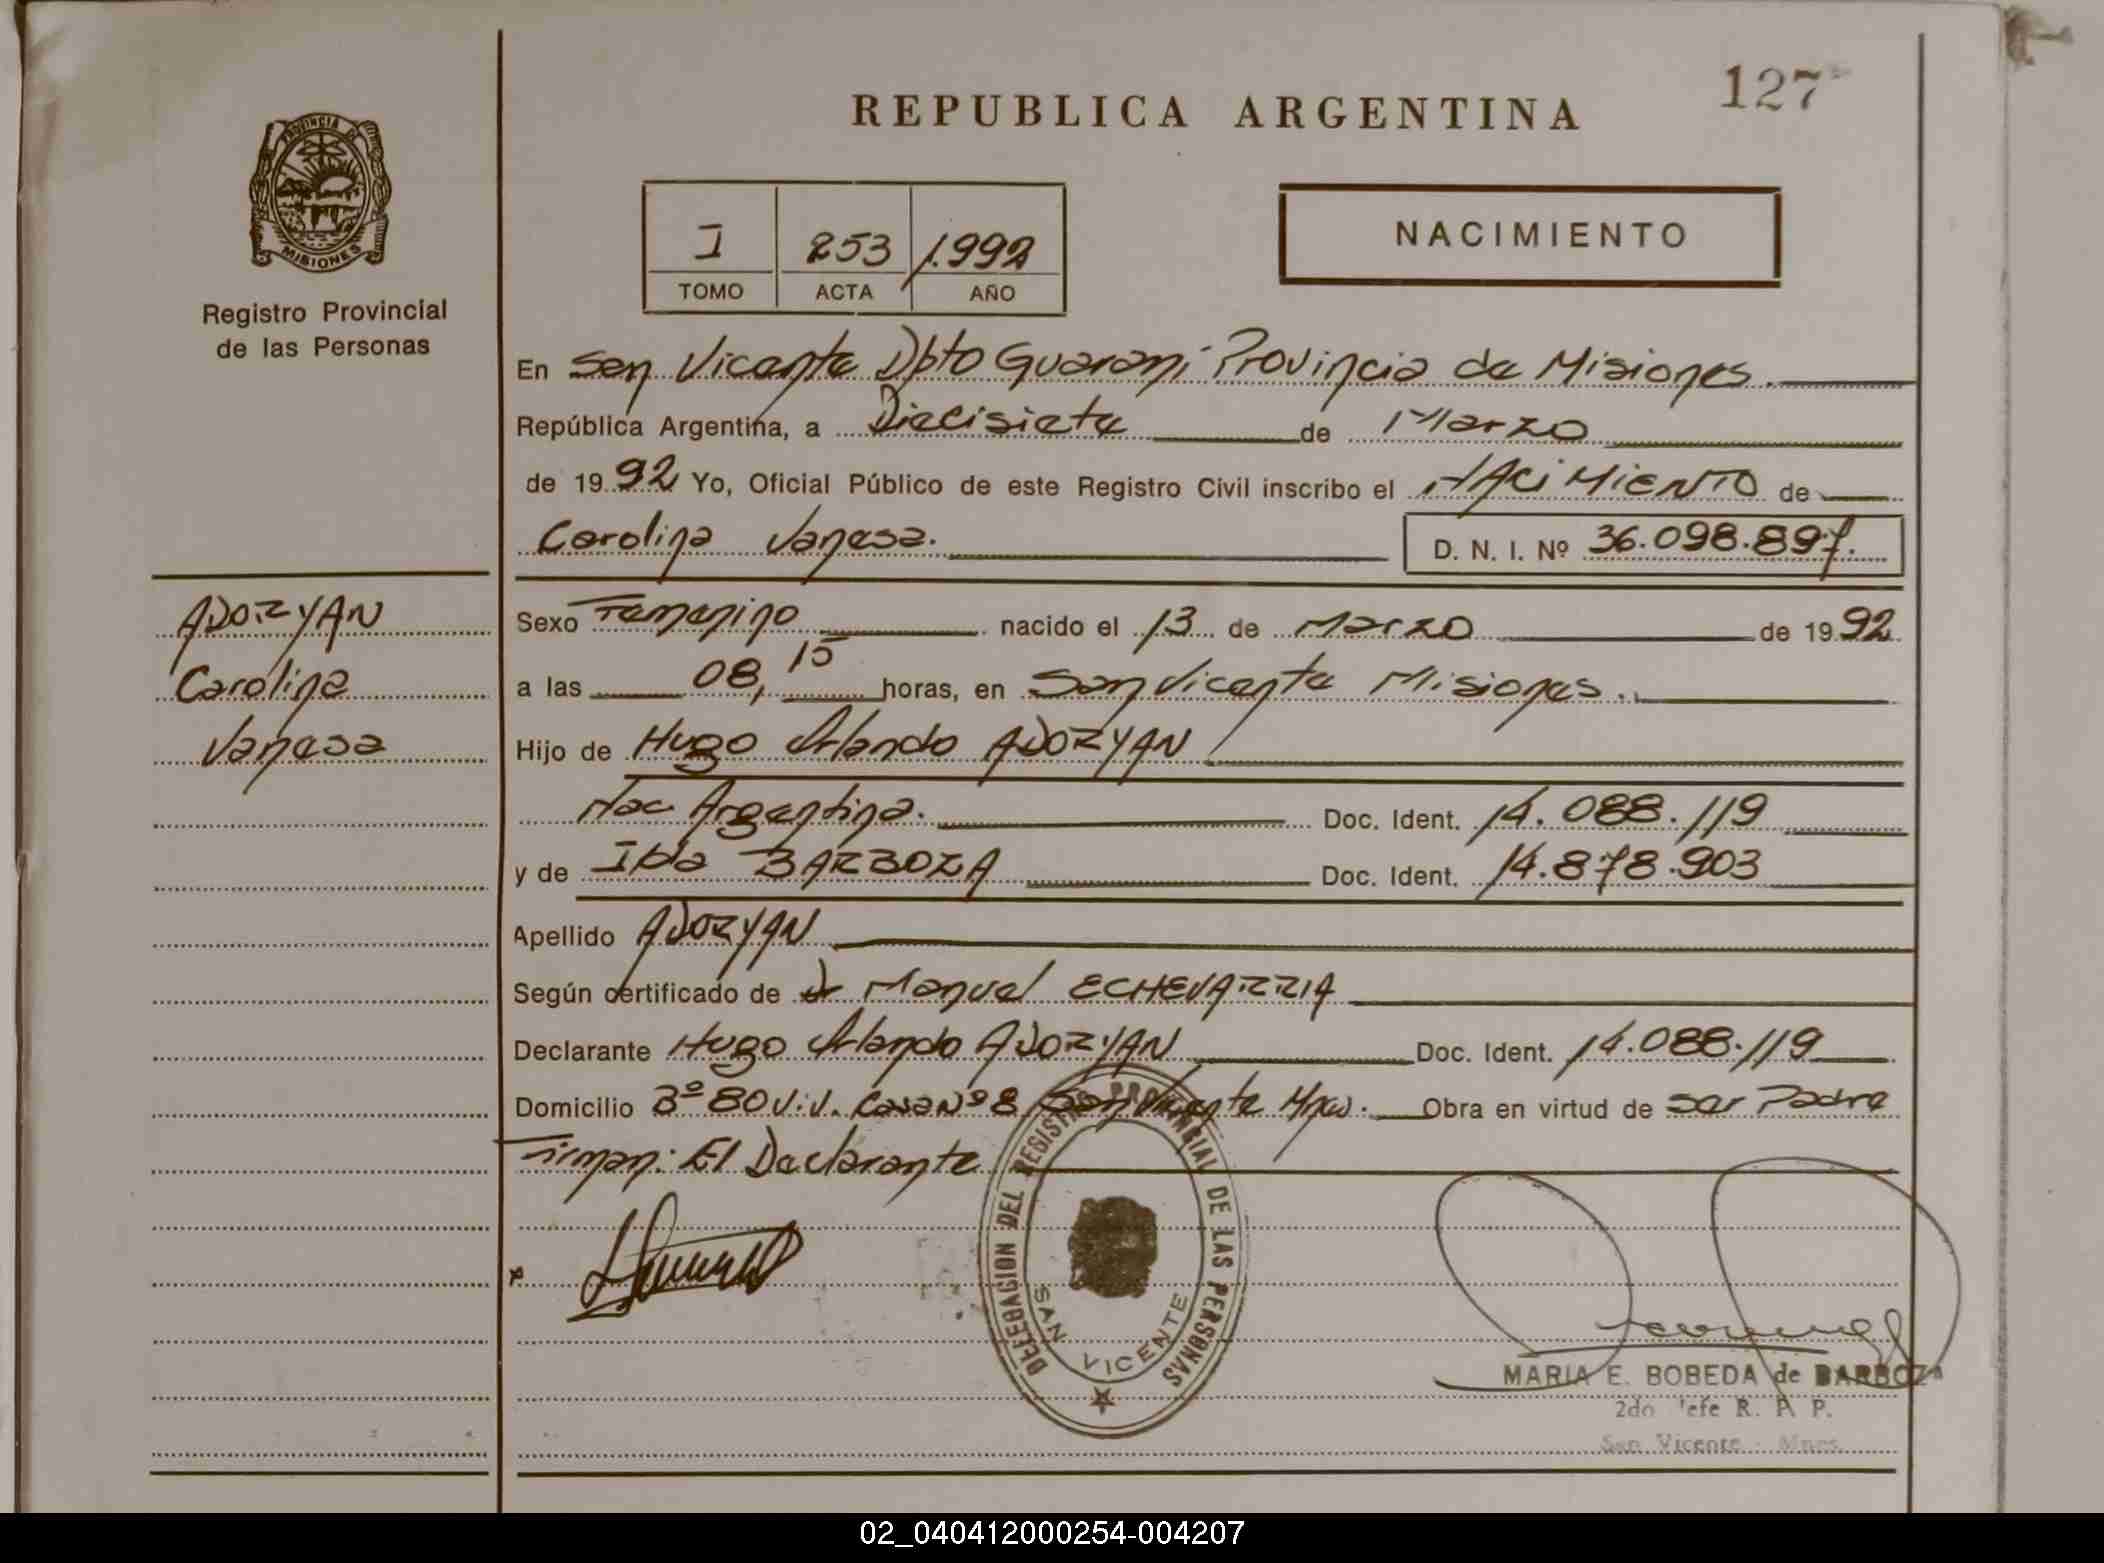 127
REPUBLICA ARGENTINA
PROVINCIA DE
MISIONES
Registro Provincial
de las Personas
I 253 1.992
TOMO ACTA AÑO
NACIMIENTO
En San Vicente Dpto Guaraní Provincia de Misiones.
República Argentina, a Diecisiete de Marzo
de 1992 Yo, Oficial Público de este Registro Civil inscribo el NACIMIENTO de
Carolina Vanesa. D. N. I. Nº 36.098.897.
ADORYAN
Carolina
Vanesa
Sexo Femenino nacido el 13 de Marzo de 1992
a las 08,15 horas, en San Vicente Misiones.
Hijo de Hugo Orlando ADORYAN
Nac Argentina. Doc. Ident. 14.088.119
y de Ida BARBOZA Doc. Ident. 14.878.903
Apellido ADORYAN
Según certificado de Dr Manuel ECHEVARRIA
Declarante Hugo Orlando ADORYAN Doc. Ident. 14.088.119
Domicilio Bº 80 Viv. Casa Nº 8 San Vicente Mnes. Obra en virtud de ser Padre
Firman: El Declarante
DELEGACION DEL REGISTRO PROVINCIAL DE LAS PERSONAS
SAN VICENTE
MARIA E. BOBEDA de BARBOZA
2do Jefe R. P. P.
San Vicente - Mnes.
02_040412000254-004207